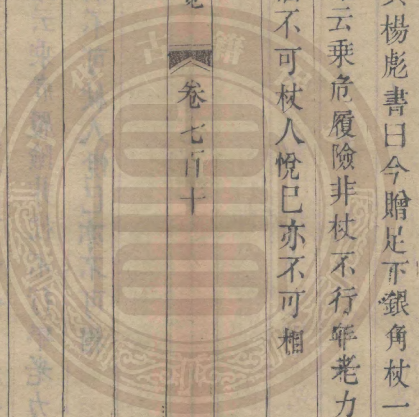 楊彪書曰今贈足下銀角杖一
云乘危履險非杖不行年老力
不可杖人悅已亦不可相
卷七百十